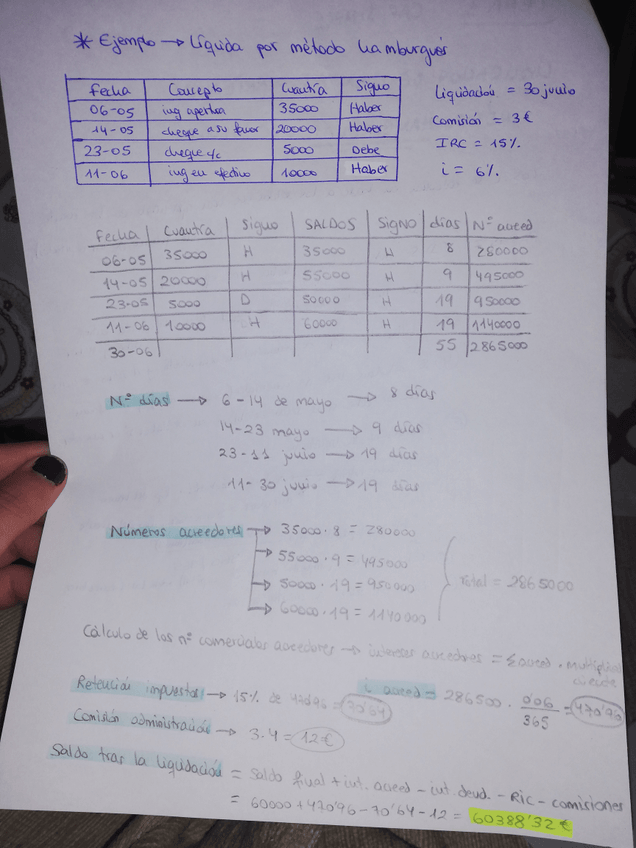 * Ejemplo → Líquida por método hamburgués
Fecha Concepto Cuantía Signo
06-05 ing apertura 35000 Haber
14-05 cheque a su favor 20000 Haber
23-05 cheque c/c 5000 Debe
11-06 ing en efectivo 10000 Haber
Liquidación = 30 junio
Comisión = 3€
IRC = 15%
i = 6%
Fecha Cuantía Signo SALDOS SIGNO días Nº acreed
06-05 35000 H 35000 H 8 280000
14-05 20000 H 55000 H 9 495000
23-05 5000 D 50000 H 19 950000
11-06 10000 H 60000 H 19 1140000
30-06 55 2865000
Nº días → 6-14 de mayo → 8 días
14-23 mayo → 9 días
23-11 junio → 19 días
11-30 junio → 19 días
Números acreedores → 35000·8 = 280000
→ 55000·9 = 495000
→ 50000·19 = 950000
→ 60000·19 = 1140000
Total = 2865000
Cálculo de los nº comerciales acreedores → intereses acreedores = Σ acreed · multiplic
i acreed = 286500 · 0'06 / 365 = 470'96
Retención impuestos → 15% de 470'96 = 70'64
Comisión administración → 3·4 = 12€
Saldo tras la liquidación = Saldo final + int. acreed - int. deud. - RIC - comisiones
= 60000 + 470'96 - 70'64 - 12 = 60388'32€